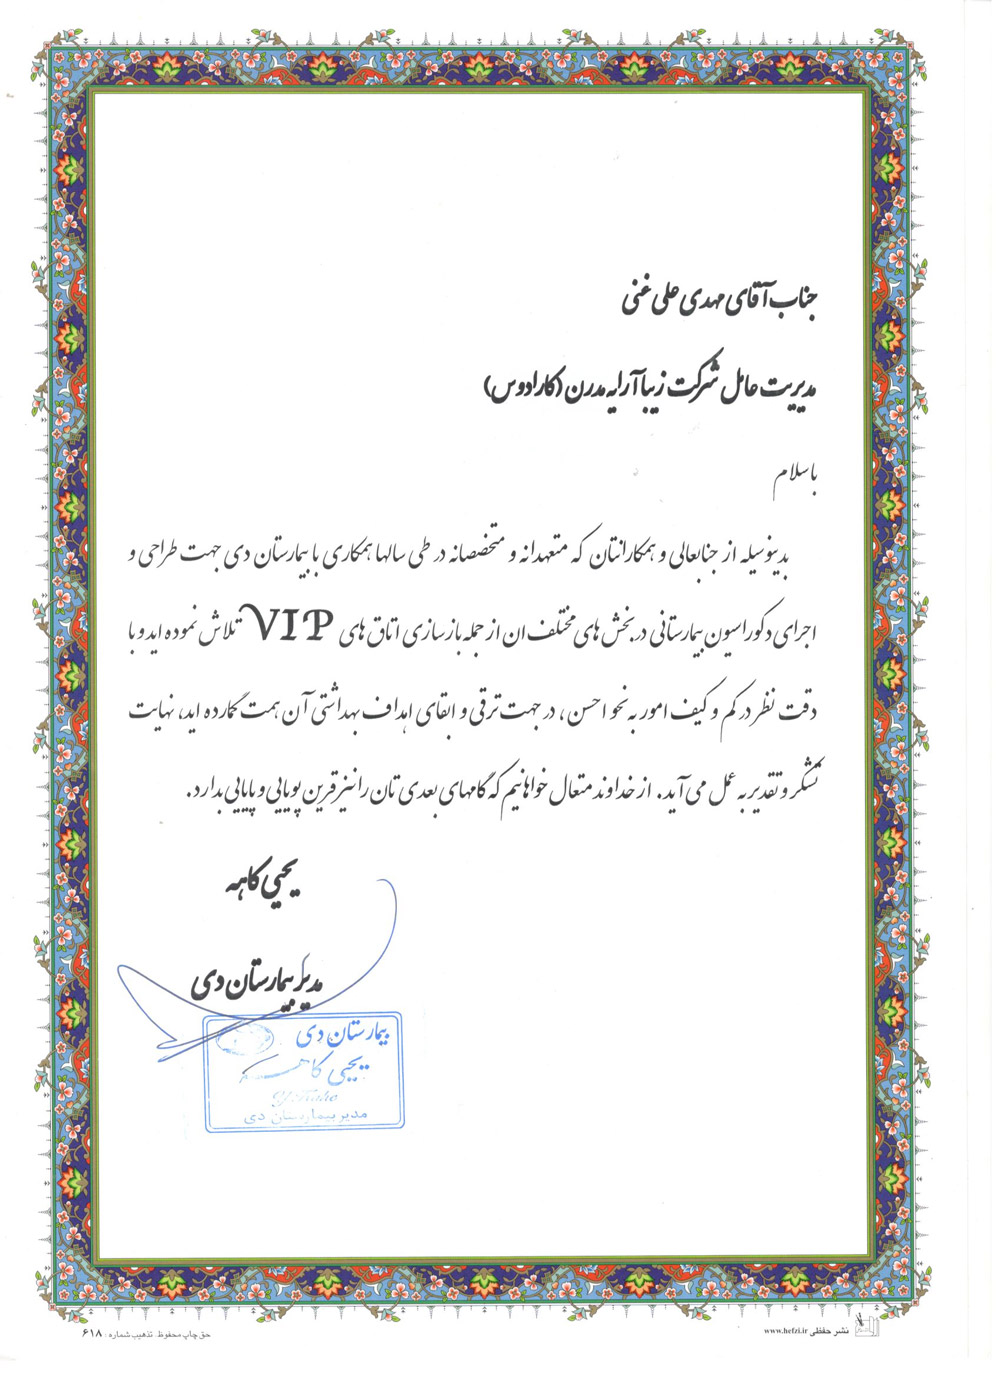 جناب آقای مهدی علی غنی
مدیریت عامل شرکت زیبا آرایه مدرن (کارادوس)
با سلام
بدینوسیله از جنابعالی و همکارانتان که متعهدانه و متخصصانه در طی سالها همکاری با بیمارستان دی جهت طراحی و
اجرای دکوراسیون بیمارستانی در بخش های مختلف ان از جمله بازسازی اتاق های VIP تلاش نموده اید و با
دقت نظر در کم و کیف امور به نحو احسن، در جهت ترقی و ابقای اهداف بهداشتی آن همت گمارده اید، نهایت
تشکر و تقدیر به عمل می آید. از خداوند متعال خواهانیم که گامهای بعدی تان را نیز قرین پویایی و پایایی بدارد.
یحیی کاهه
مدیر بیمارستان دی
بیمارستان دی
یحیی کاهه
مدیر بیمارستان دی
نشر حفظی www.hefzi.ir
حق چاپ محفوظ. تذهیب شماره: ۶۱۸